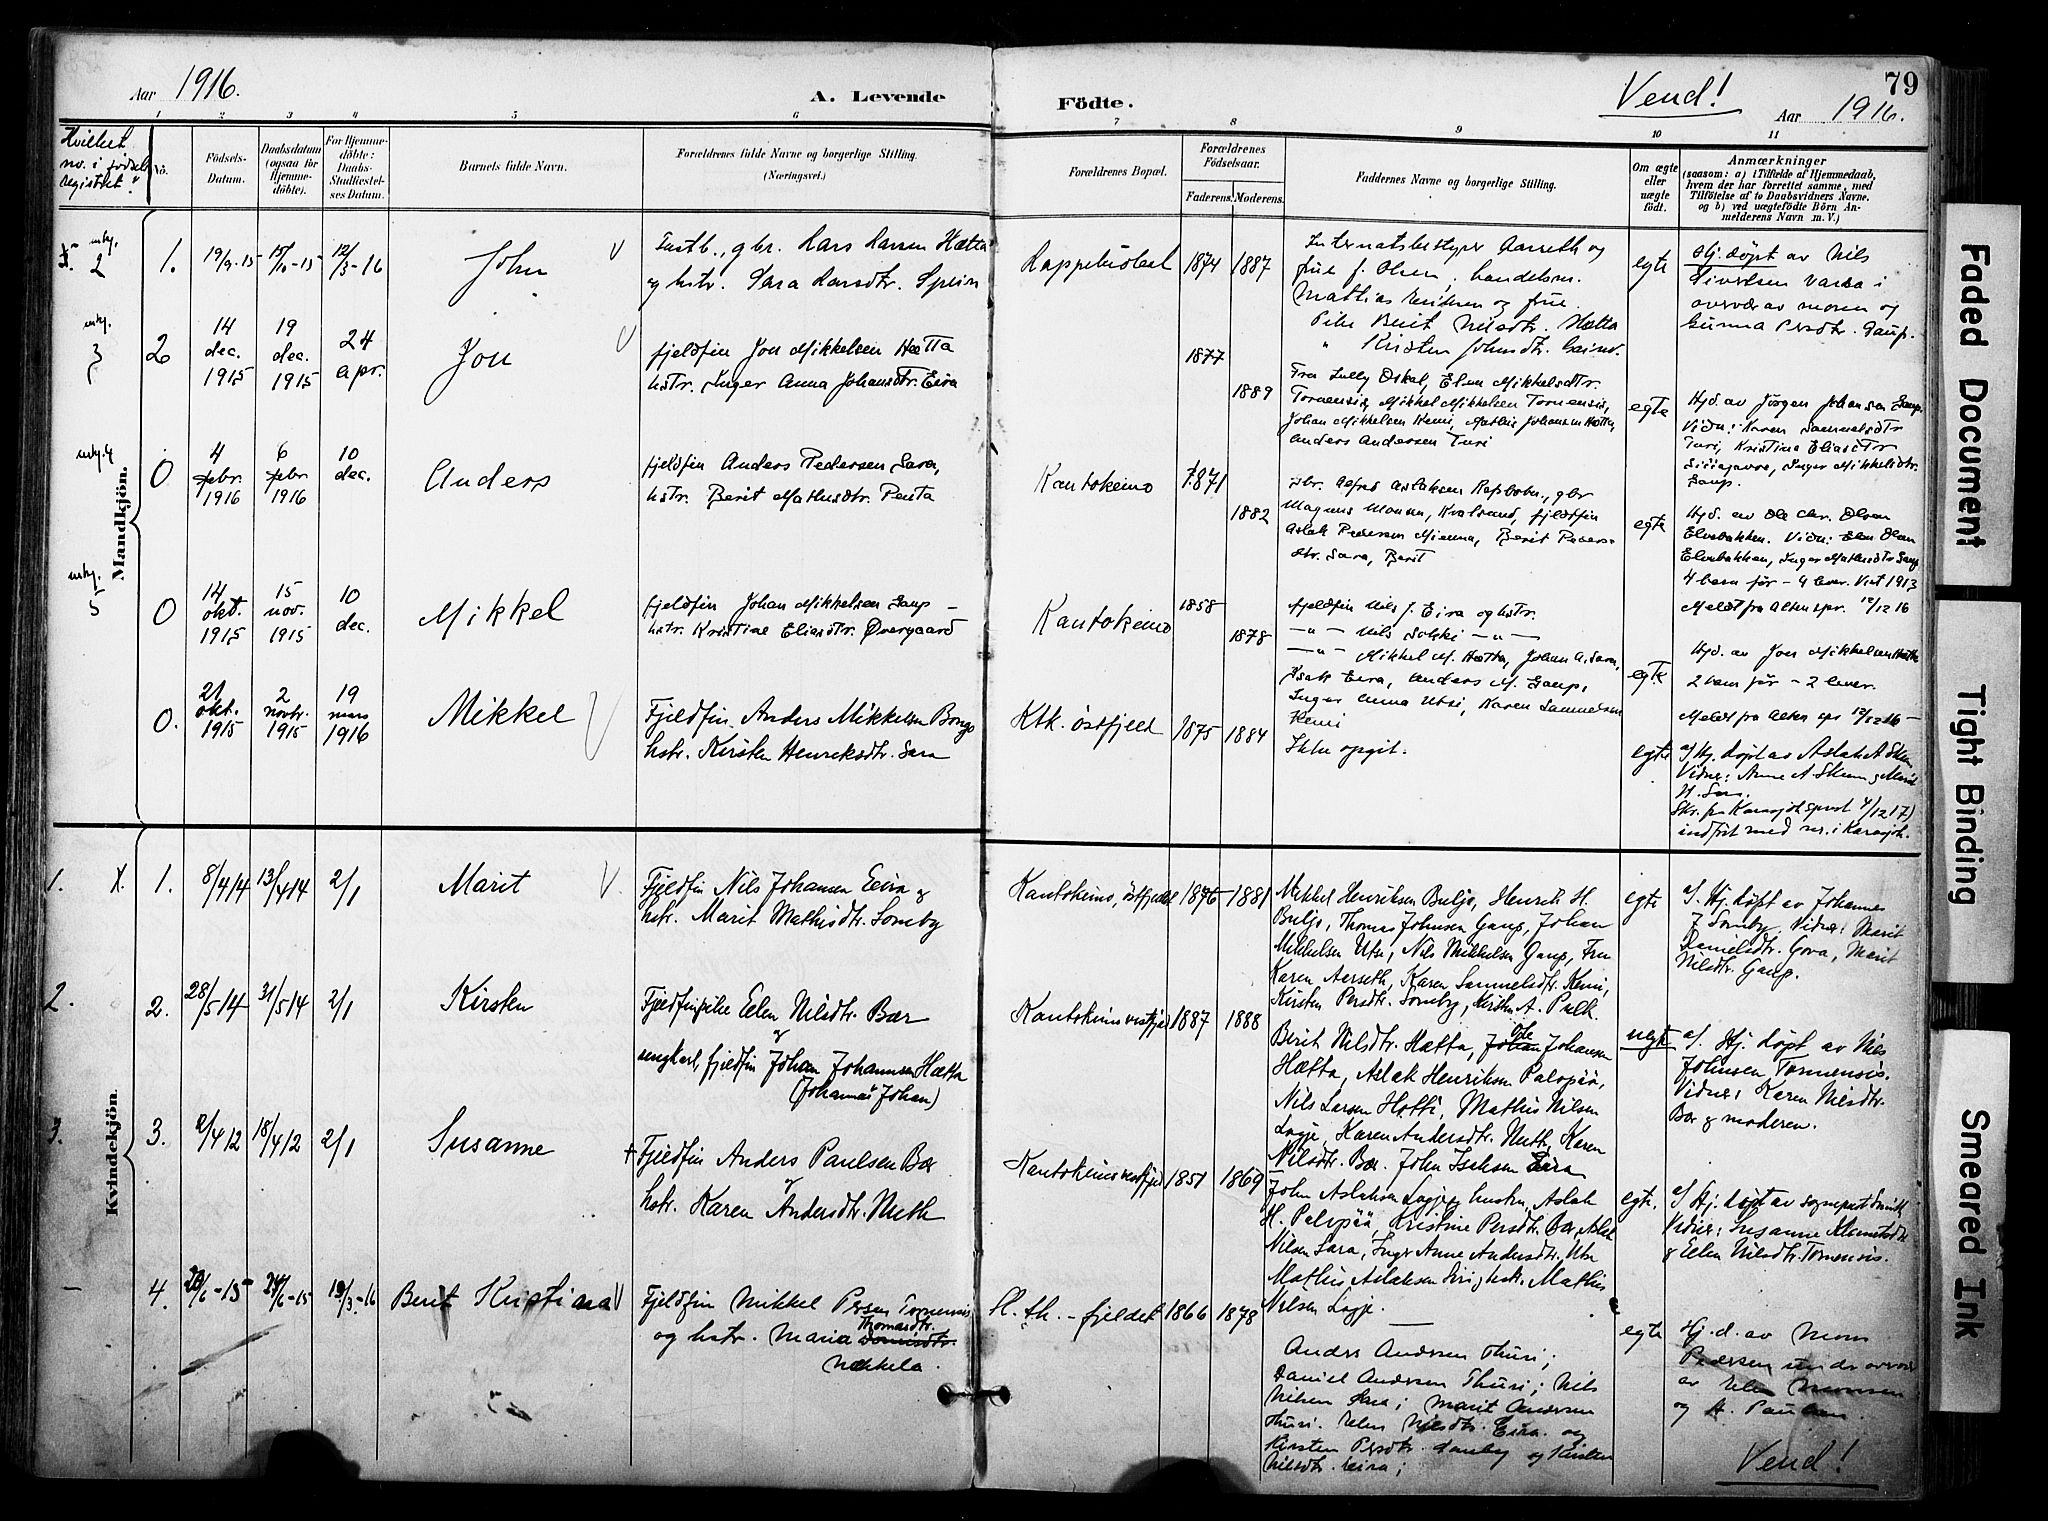 Aar 1916.
A. Levende
Födte.
Vend!
79
Aar 1916.
1 2 3 4 5 6 7 8 9 10 11
Hvilket no. i födsels registret?
No.
Födsels-Datum.
Daabsdatum (ogsaa for Hjemmedöbte).
For Hjemmedöbte: Daabs-Stadfæstelses Datum.
Barnets fulde Navn.
Forældrenes fulde Navne og borgerlige Stilling. (Næringsvei.)
Forældrenes Bopæl.
Forældrenes Födselsaar.
Faderens. Moderens.
Faddernes Navne og borgerlige Stilling.
Om ægte eller uægte födt.
Anmærkninger
(saasom: a) i Tilfælde af Hjemmedaab,
hvem der har forrettet samme, med
Tilföielse af to Daabsvidners Navne,
og b) ved uægtefödte Börn An-
melderens Navn m. V.)
Mandkjön.
2
1. 19/9-15 15/10-15 12/3-16
John
Fastb., gbr. Lars Larsen Hætta
og hstr. Sara Larsdtr. Spein
Lappeluobal
1874 1887
Internatsbestyrer Aarseth og
frue, J. Olsen, handelsm.
Mathias Eriksen og frue.
Pike Berit Nilsdtr. Hætta
" Kristen Johnsdtr. Gaino.
egte
Hj.döpt av Nils
Sivertsen Vassa i
overvær av moren og
Gunna Persdtr. Gaup.
3
2 14 dec. 1915 19 dec. 1915 24 apr.
Jon
fjeldfin Jon Mikkelsen Hætta
hstr. Inger Anna Johansdtr. Eira
1877
1889
Fra Lully Oskal, Elen Mikkelsdtr.
Tornensis, Mikkel Mikkelsen Tornensis,
Johan Mikkelsen Kemi, Mathis Johansen Hætta,
Anders Andersen Turi
egte
Hjd. av Jörgen Johansen Gaup.
Vidn: Karen Samuelsdtr
Turi, Kristina Eliasdtr
Inger Mikkelsdtr.
Gaup.
0 4 febr 1916 6 febr 1916 10 dec.
Anders
fjeldfin Anders Pedersen Sara,
hstr. Berit Mathisdtr. Penta
Kautokeino
1871
1882
gbr. Alfred Aslaksen, gbr
Magnus Monsen, Kvalsund, fjeldfin
Aslak Pedersen Mienna, Berit Peders-
dtr. Sara, Berit
egte
Hjd. av Ole Chr. Olsen
Elvebakken. Vidn: Elen Olsen
Elvebakken, Inger Mathisdtr Gaup
4 barn för - 4 lever. Viet 1913
Meldt fra Alten spr. 12/12 16
5
0 14 okt. 1915 15 nov. 1915 10 dec.
Mikkel
fjeldfin Johan Mikkelsen Gaup -
hstr. Kristine Eliasdtr. Övergaard
Kautokeino
1858
1878
fjeldfin Nils J. Eira og hstr.
- " - Nils Solski - " -
- " - Mikkel M. Hætta, Johan A. Sara,
Isak Eira, Anders M. Gaup,
Inger Anna Utsi, Karen Samuelsen
Kemi
egte
Hjd. av Jon Mikkelsen Hætta
2 barn för - 2 lever.
Meldt fra Alten spr 12/12 16 -
0. 21 okt. 1915 2 novbr. 1915 19 mars 1916
Mikkel
Fjeldfin Anders Mikkelsen Bongo
hstr. Kirsten Henriksdtr. Sara
Ktk. östfjeld
1875 1884
Ikke opgit.
egte
a/ Hj. döpt av Aslak A Skum
Vidner: Anne A Skum og Marit
N. Sara.
Skr. fra Karasjok sprest 4/12 17)
indfört med nr. i Karasjok.
Kvindekjön.
1. X. 1. 8/4 14 13/4 14 2/1
Marit
Fjeldfin Nils Johansen Eira og
hstr. Marit Mathisdtr. Somby
Kautokeino, östfjeld
1876 1881
Mikkel Henriksen Buljo, Henrik H.
Buljo, Thomas Johnsen Gaup, Johan
Mikkelsen Utsi, Nils Mikkelsen Gaup, Fru
Karen Aarseth, Karen Samuelsdtr. Kemi,
Kirsten Persdtr. Somby, Kirsten A. Pulk.
egte
a/. Hj. döpt av Johannes
J Somby, Vidner: Marit
Danielsdtr. Gova, Marit
Nilsdtr. Gaup.
2. 2. 28/5 14 31/5 14 2/1
Kirsten
Fjeldfinpike Ellen Nilsdtr. Bær
og
ungkarl, fjeldfin Johan Johannsen Hætta
(Johannes Johan)
Kautokeino vestfjeld
1887 1888
Berit Nilsdtr. Hætta, Johan Ole Johansen
Hætta, Aslak Henriksen Palojää,
Nils Larsen Hotti, Mathis Nilsen
Logje, Karen Andersdtr. Nuth, Karen
Nilsdtr. Bær. John Isaksen Eira
uegte
a/. Hj. döpt av Nils
Johnsen Tornensis.
Vidner: Karen Nilsdtr.
Bær og moderen.
3. 3. 2/4 12 18/4 12 2/1
Susanne
† Fjeldfin Anders Paulsen Bær
og
hstr. Karen Andersdtr. Nuth
Kautokeino vestfjeld
1851 1869
John Aslaksen Logje og hustru, Aslak
H. Palojää, Kristine Persdtr. Bær, Aslak
Nilsen Sara, Inger Anne Andersdtr. Utsi
Mathis Aslaksen Siri, Mathis
Nilsen Logje.
egte.
a/ Hj. döpt av sogneprest Smith
Vidner: Susanne Klemetsdtr
og Ellen Nilsdtr. Tornensis.
4. 20/6-15 24/6-15 19/3-16
Berit Kristina
Fjeldfin Mikkel Persen Tornensis
og hstr. Maria Thomasdtr.
Nækkela.
Kl. th. - fjeldet
1866 1878
Anders Andersen Thuri;
Daniel Andersen Thuri; Nils
Nilsen Sara; Marit Andersen
Thuri. Elen Nilsdtr. Eira. og
Kirsten Persdtr. Somby og Kirsten
Nilsdtr. Eira;
egte
Hj.d. av Mons
Pedersen under overvær
av Elen Monsen
og A. Paulsen
Vend!
Faded Document
Tight Binding
Smeared Ink